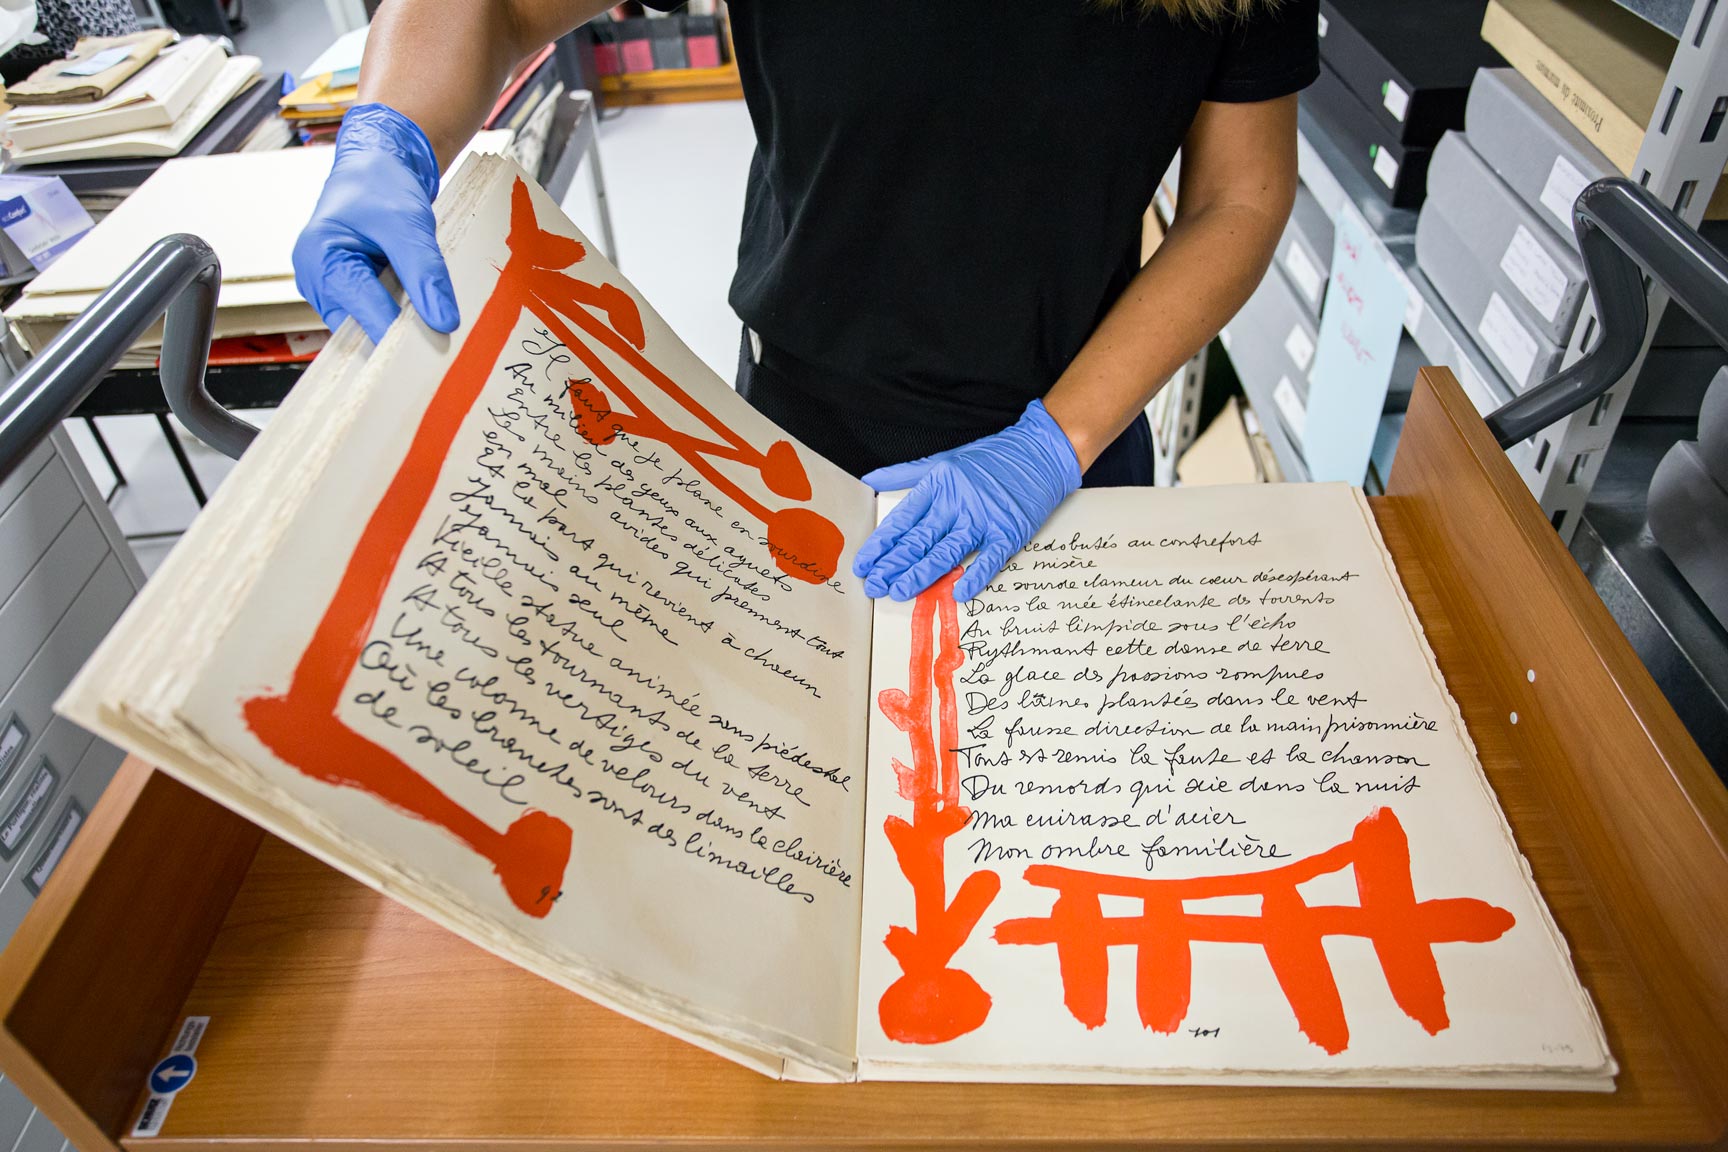 Il faut que je plane en sourdine
Au milieu des yeux aux aguets
Entre les plantes délicates
Les mains avides qui prennent tout
en mal
Et la part qui revient à chacun
Jamais au même
Jamais seul
Vieille statue animée sans piédestal
A tous les tournants de la terre
A tous les vertiges du vent
Une colonne de velours dans la clairière
Où les branches sont des limailles
de soleil
92
au contrefort
misère
sourde clameur du cœur désespéré
Dans la mée étincelante des torrents
Au bruit limpide sous l'écho
Rythmant cette danse de terre
La glace des passions rompues
Des lâmes plantées dans le vent
La fausse direction de la main prisonnière
Tout est remis la faute et la chanson
Du remords qui scie dans la nuit
Ma cuirasse d'acier
Mon ombre familière
101
Proximité du murmure